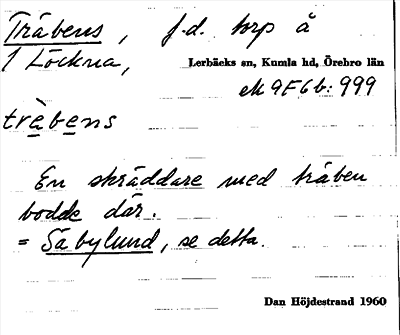 Träbens, f.d. torp å
1 Löckna,
Lerbäcks sn, Kumla hd, Örebro län
ek 9F6b: 999
trèbens
En skräddare med träben
bodde där.
= Säbylund, se detta.
Dan Höjdestrand 1960